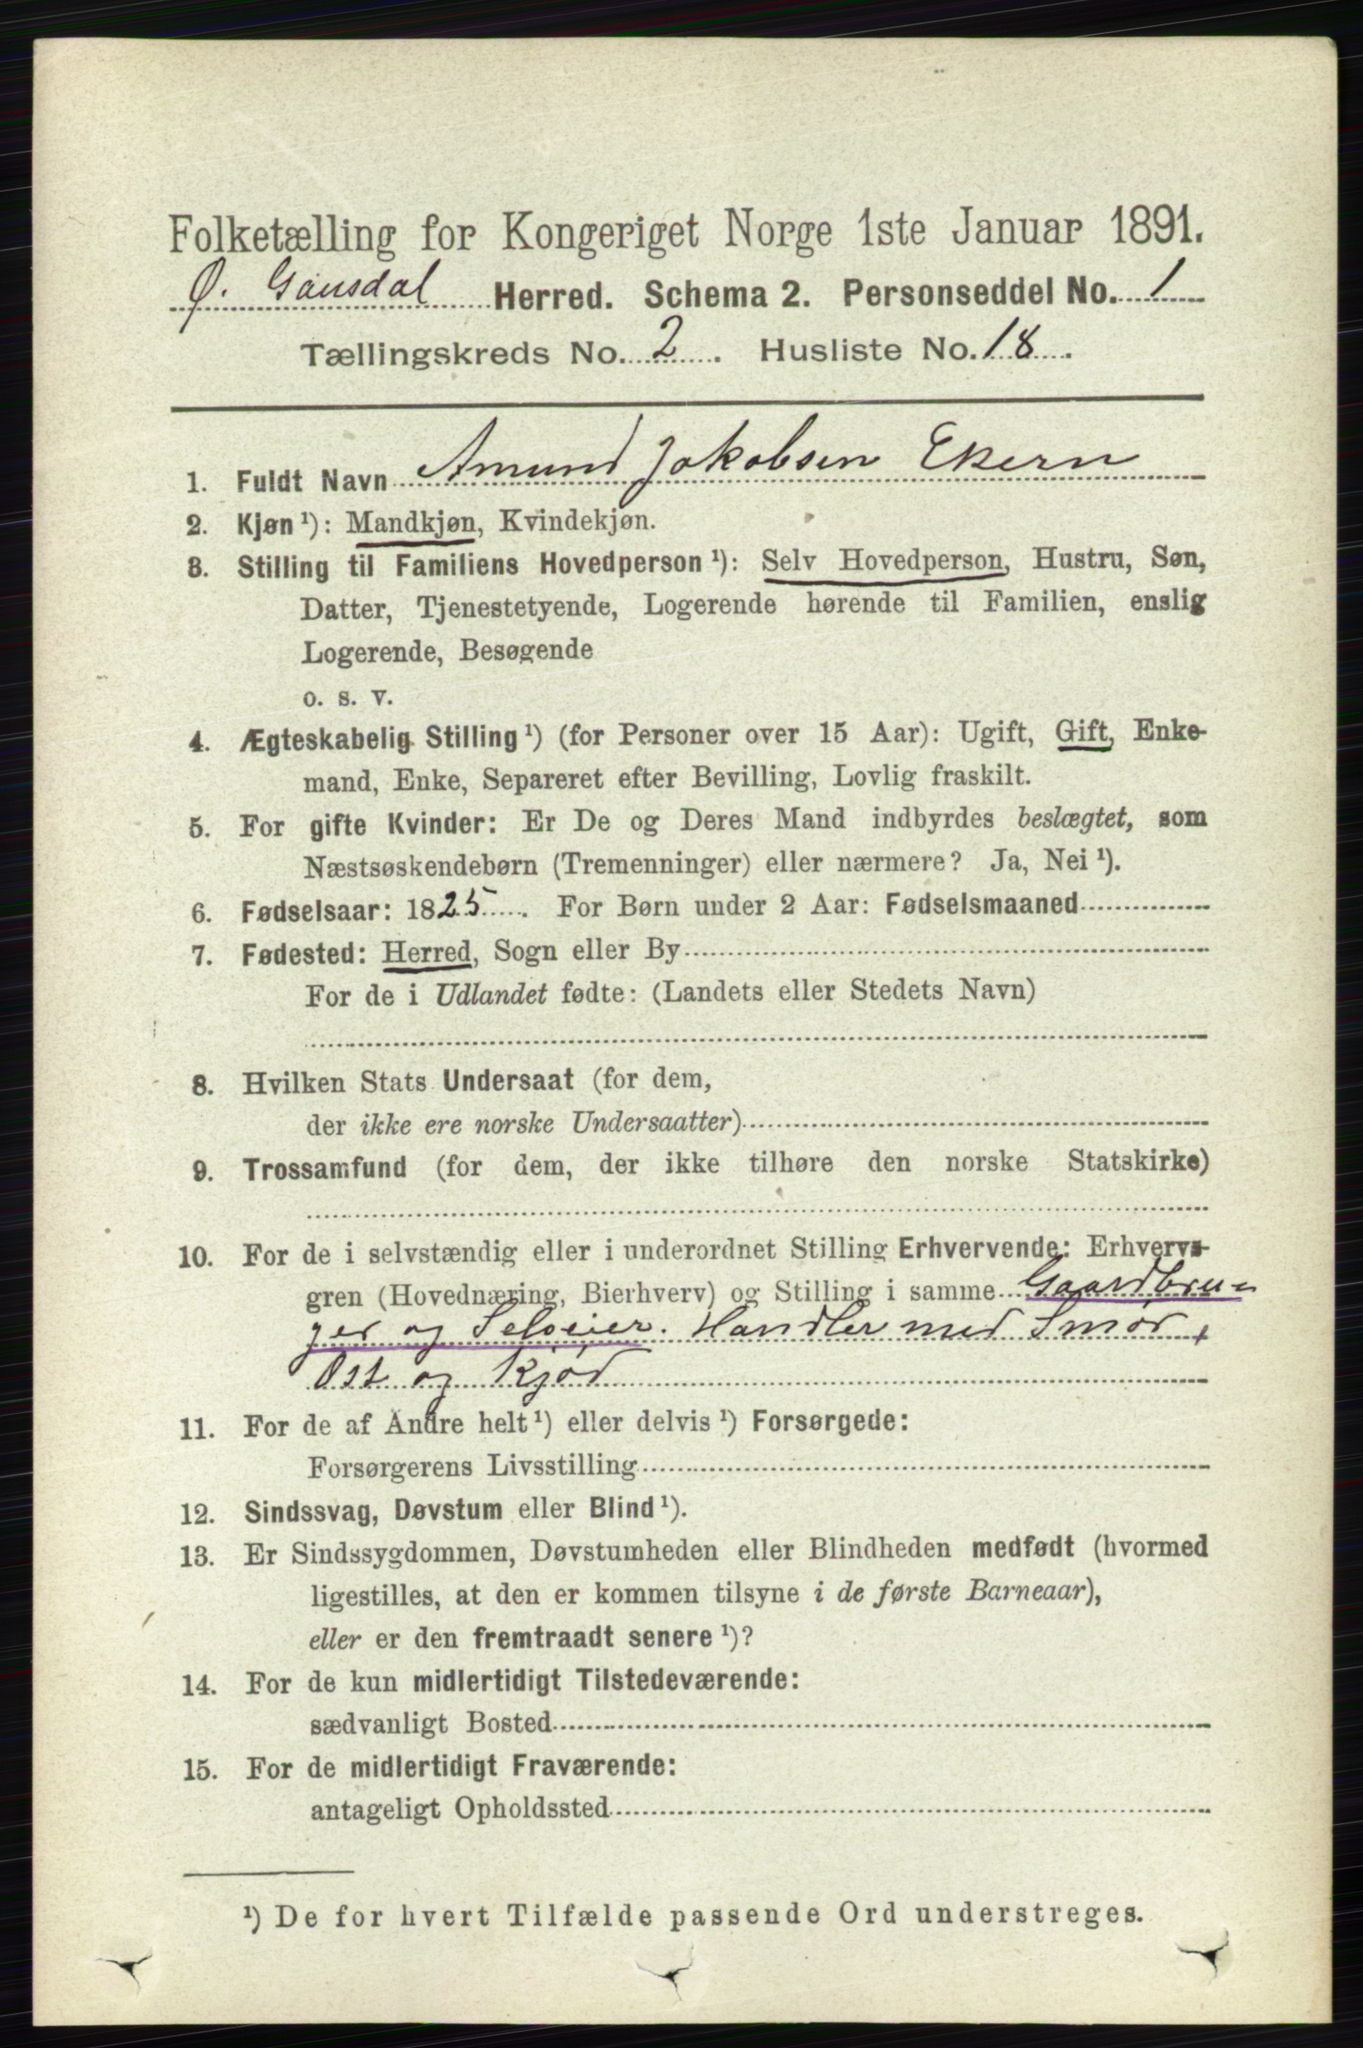 Folketælling for Kongeriget Norge 1ste Januar 1891.
Ø. Gausdal Herred. Schema 2. Personseddel No. 1
Tællingskreds No. 2. Husliste No. 18.
1. Fuldt Navn Amund Jakobsen Ekern
2. Kjøn ¹): Mandkjøn, Kvindekjøn.
3. Stilling til Familiens Hovedperson ¹): Selv Hovedperson, Hustru, Søn,
Datter, Tjenestetyende, Logerende hørende til Familien, enslig
Logerende, Besøgende
o. s. v.
4. Ægteskabelig Stilling ¹) (for Personer over 15 Aar): Ugift, Gift, Enke-
mand, Enke, Separeret efter Bevilling, Lovlig fraskilt.
5. For gifte Kvinder: Er De og Deres Mand indbyrdes beslægtet, som
Næstsøskendebørn (Tremenninger) eller nærmere? Ja, Nei ¹).
6. Fødselsaar: 1825. For Børn under 2 Aar: Fødselsmaaned
7. Fødested: Herred, Sogn eller By
For de i Udlandet fødte: (Landets eller Stedets Navn)
8. Hvilken Stats Undersaat (for dem,
der ikke ere norske Undersaatter)
9. Trossamfund (for dem, der ikke tilhøre den norske Statskirke)
10. For de i selvstændig eller i underordnet Stilling Erhvervende: Erhvervs-
gren (Hovednæring, Bierhverv) og Stilling i samme Gaardbru-
ger og Selveier. Handler med Smør,
Ost og Kjød
11. For de af Andre helt ¹) eller delvis ¹) Forsørgede:
Forsørgerens Livsstilling
12. Sindssvag, Døvstum eller Blind ¹).
13. Er Sindssygdommen, Døvstumheden eller Blindheden medfødt (hvormed
ligestilles, at den er kommen tilsyne i de første Barneaar),
eller er den fremtraadt senere ¹)?
14. For de kun midlertidigt Tilstedeværende:
sædvanligt Bosted
15. For de midlertidigt Fraværende:
antageligt Opholdssted
¹) De for hvert Tilfælde passende Ord understreges.